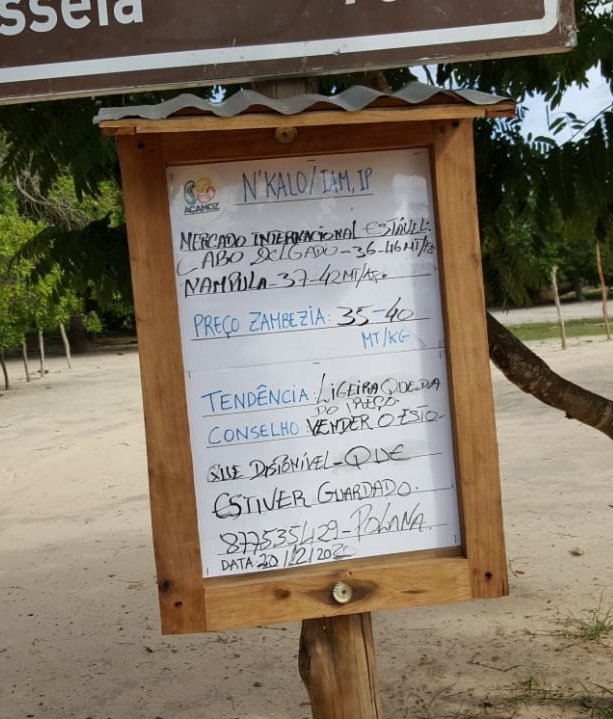 sseia
ACAMOZ
N'KALO/IAM, IP
MERCADO INTERNACIONAL ESTÁVEL:
CABO DELGADO-36-46MT/KG
NAMPULA-37-42MT/KG.
PREÇO ZAMBEZIA: 35-40
MT/KG
TENDÊNCIA: LIGEIRA QUEDA
DO PREÇO.
CONSELHO VENDER O ESTO-
QUE DISPONÍVEL-QUE
ESTIVER GUARDADO.
877535429-POLANA.
DATA: 20/12/2020